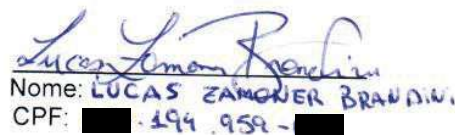 Lucas Zamoner Brandini
Nome: LUCAS ZAMONER BRANDINI.
CPF: .194.959-